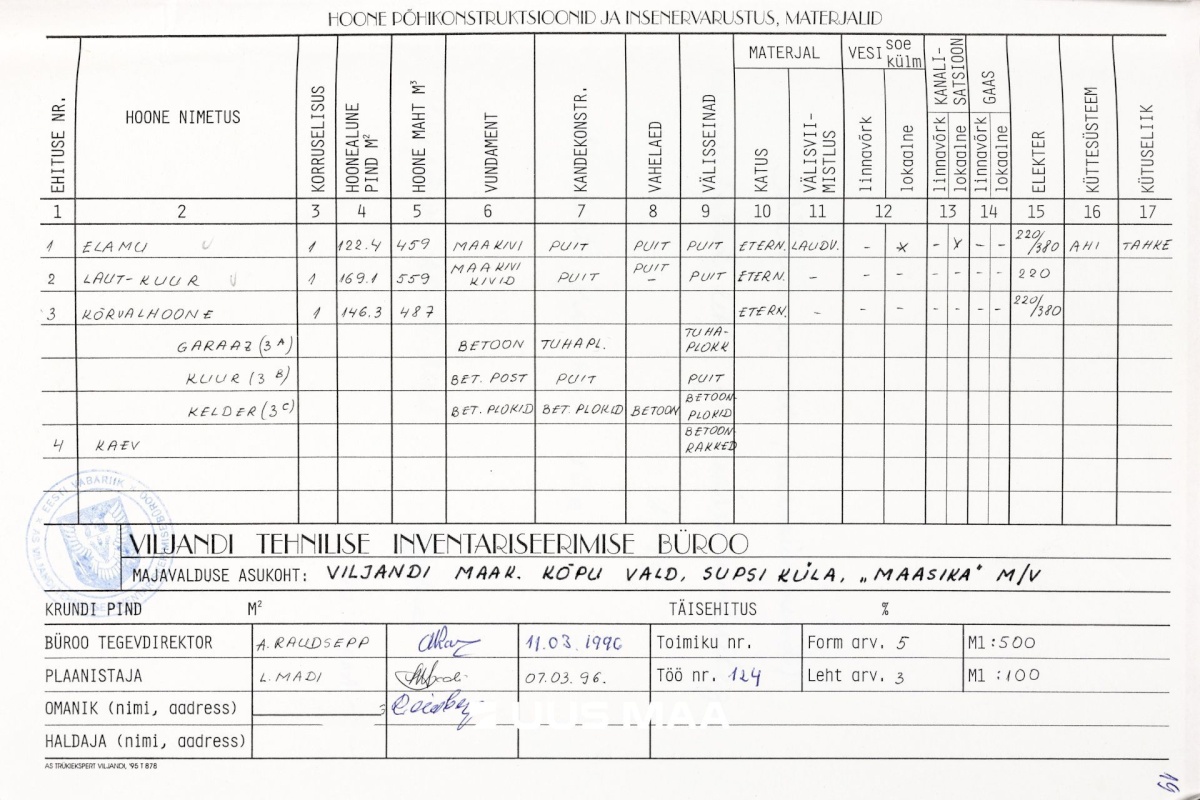 HOONE PÕHIKONSTRUKTSIOONID JA INSENERVARUSTUS, MATERJALID
EHITUSE NR. HOONE NIMETUS KORRUSELISUS HOONEALUNE PIND M² HOONE MAHT M³ VUNDAMENT KANDEKONSTR. VAHELAED VÄLISSEINAD MATERJAL KATUS VÄLISVII-MISTLUS VESI soe külm linnavõrk lokaalne KANALI-SATSIOON linnavõrk lokaalne GAAS linnavõrk lokaalne ELEKTER KÜTTESÜSTEEM KÜTUSELIIK
1 2 3 4 5 6 7 8 9 10 11 12 13 14 15 16 17
1 ELAMU 1 122.4 459 MAAKIVI PUIT PUIT PUIT ETERN. LAUDV. - x - x - - 220/380 AHI TAHKE
2 LAUT-KUUR 1 169.1 559 MAAKIVI KIVID PUIT PUIT - PUIT ETERN. - - - - - - - 220
3 KÕRVALHOONE 1 146.3 487 ETERN. - - - - - - - 220/380
GARAAZ (3 A) BETOON TUHAPL. TUHA-PLOKK
KUUR (3 B) BET. POST PUIT PUIT
KELDER (3 C) BET. PLOKID BET. PLOKID BETOON BETOON-PLOKID
4 KAEV BETOON-RAKKED
EESTI VABARIIK
VILJANDI TEHNILISE INVENTARISEERIMISE BÜROO
MAJAVALDUSE ASUKOHT: VILJANDI MAAK. KÕPU VALD, SUPSI KÜLA, „MAASIKA" M/V
KRUNDI PIND M² TÄISEHITUS %
BÜROO TEGEVDIREKTOR A. RAUDSEPP 11.03.1996 Toimiku nr. Form arv. 5 M1:500
PLAANISTAJA L. MADI 07.03.96. Töö nr. 124 Leht arv. 3 M1:100
OMANIK (nimi, aadress)
UUS MAA
HALDAJA (nimi, aadress)
AS TRÜKIEKSPERT VILJANDI, '95 T 878
19